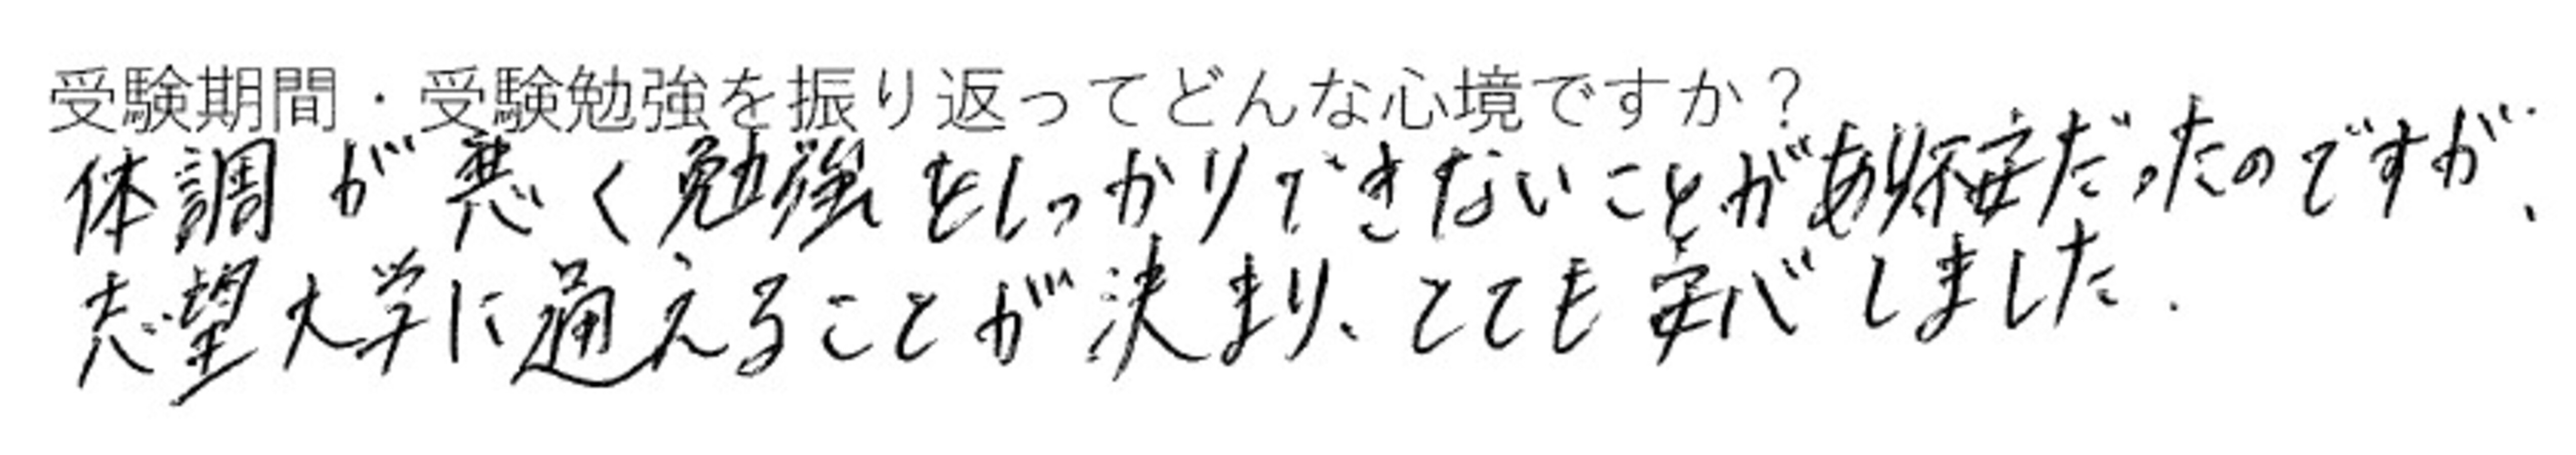 受験期間・受験勉強を振り返ってどんな心境ですか？
体調が悪く勉強をしっかりできないことがあり不安だったのですが、
志望大学に通えることが決まり、とても安心しました.